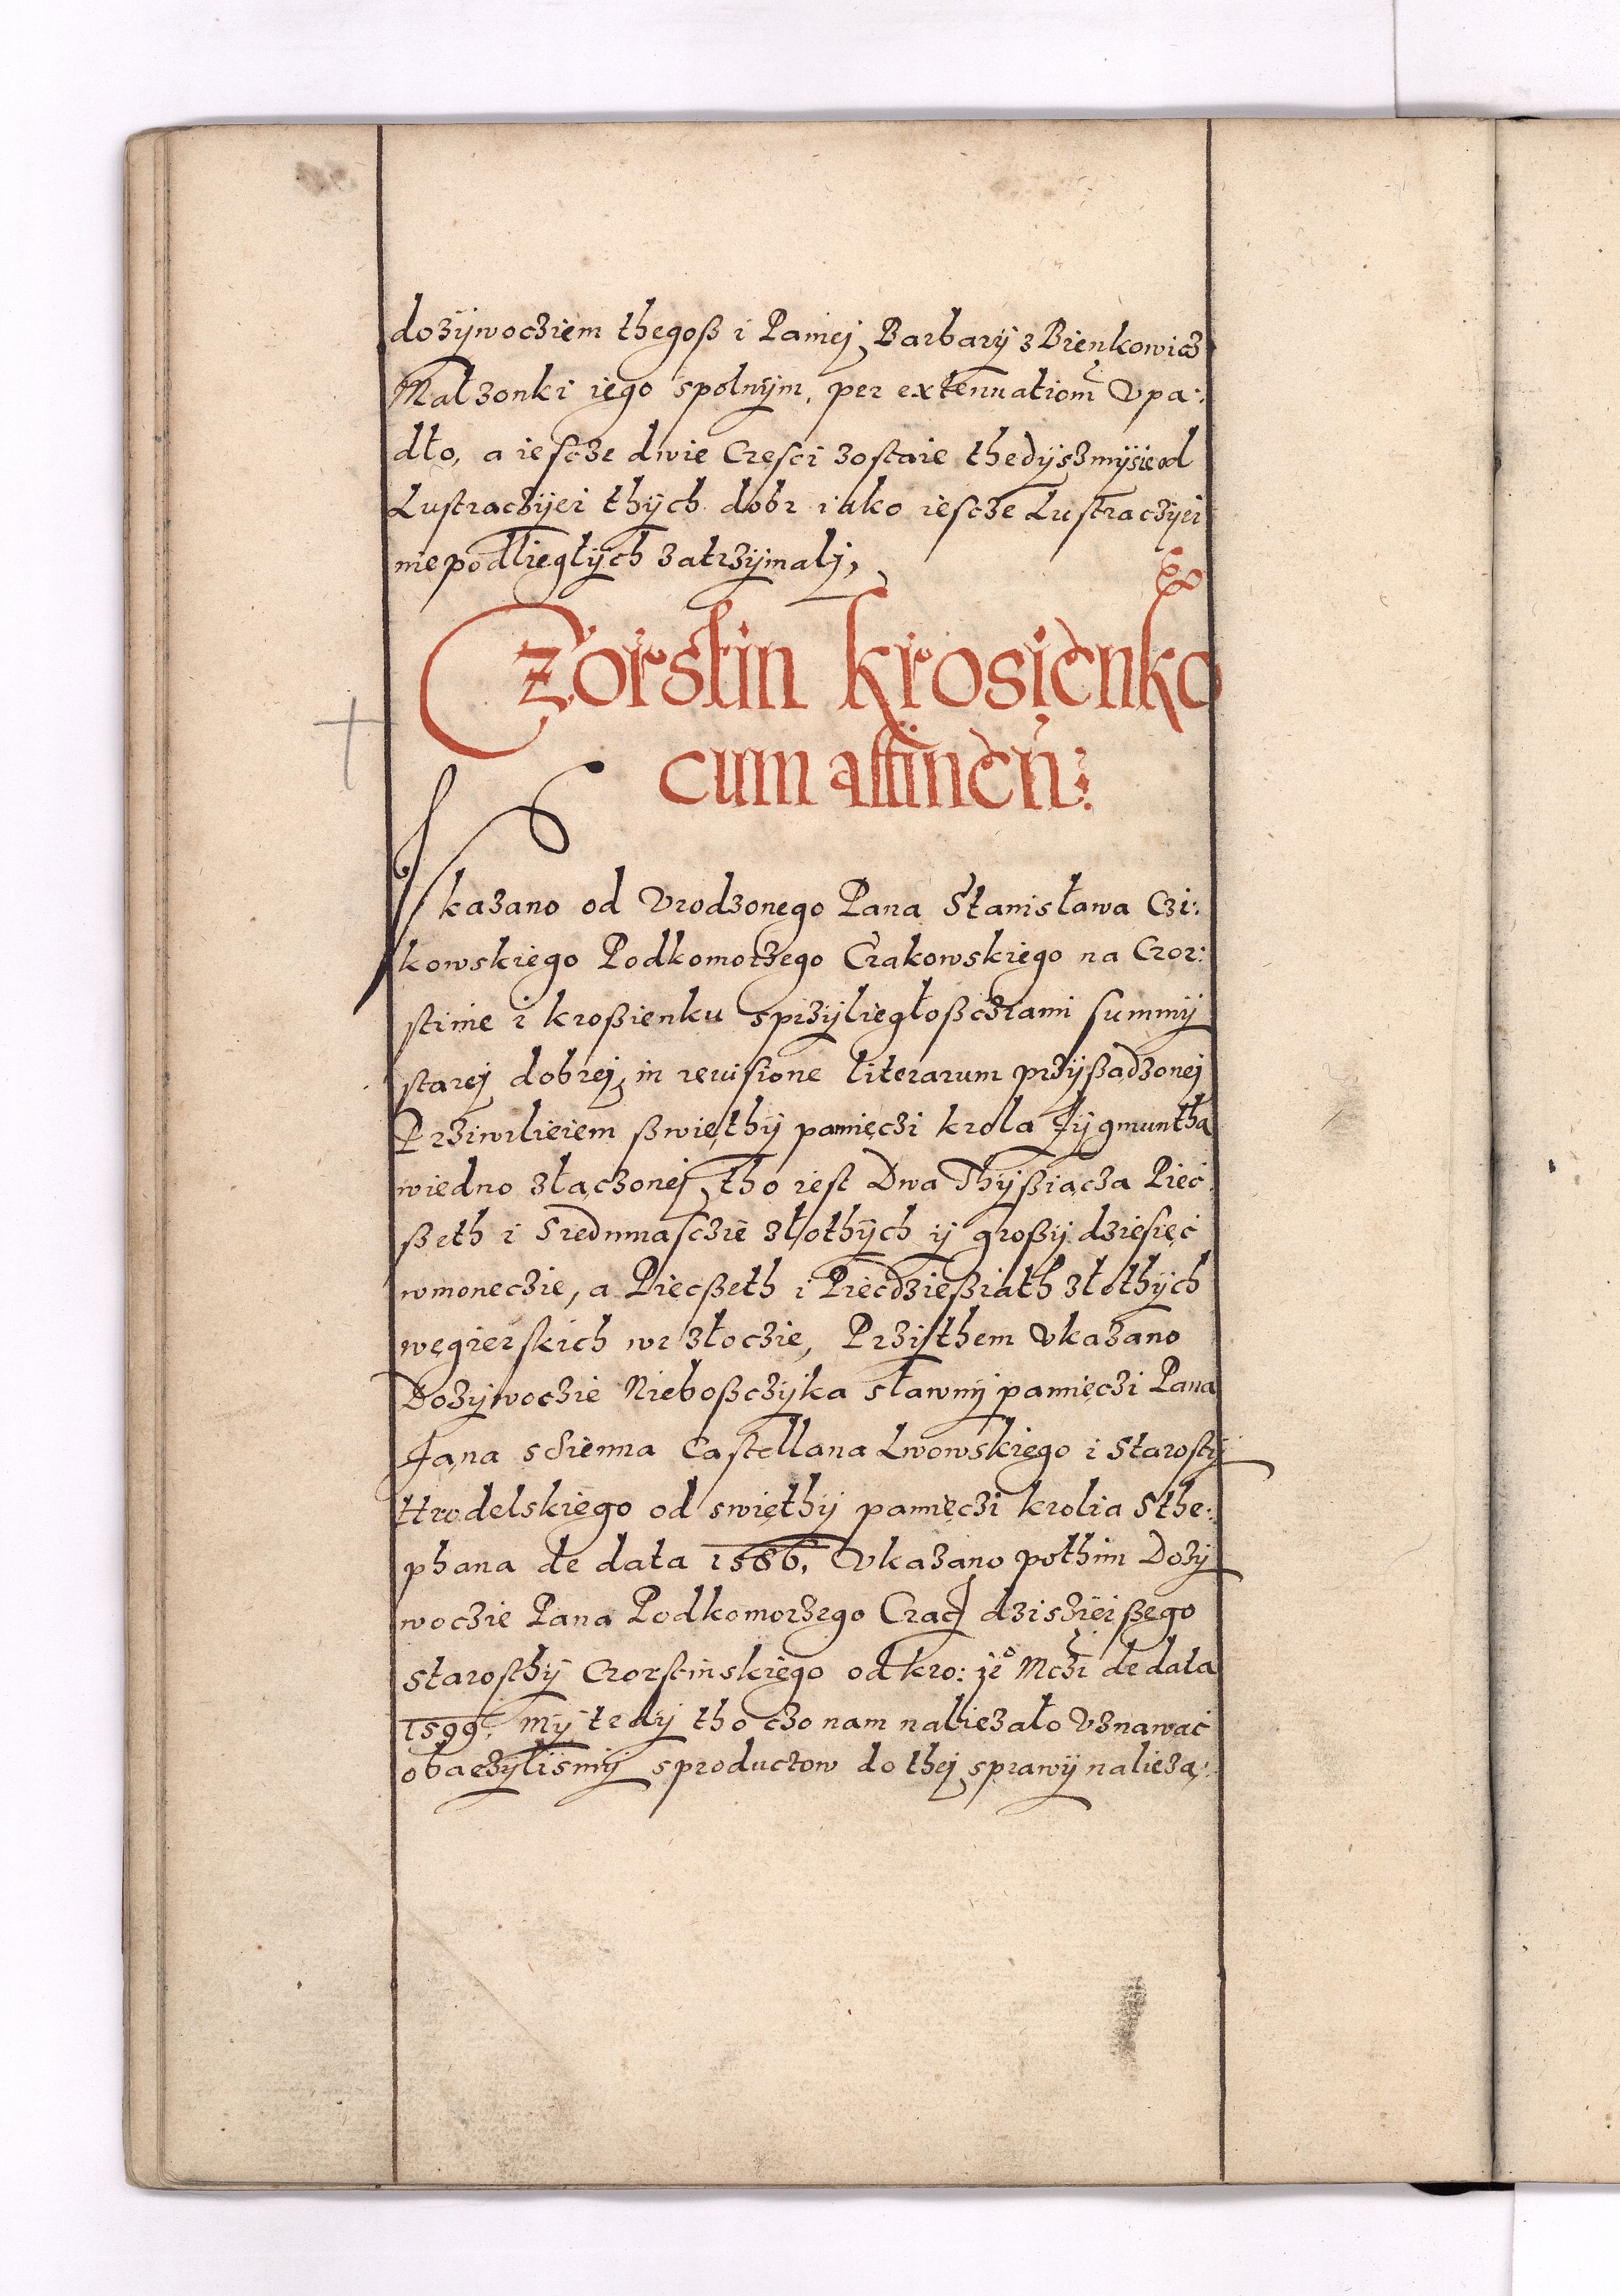 dożÿwocziem thegoß i Paniej Barbarÿ z Bieńkowicz
Małzonki iego spolnÿm, per extenuationē Vpa:
dło, a iescze dwie Czesci zostaie thedÿszmÿsie od
Lustraczÿei thÿch dobr iako iescze Lustraczÿei
niepodliegłÿch zatrzÿmalÿ,
Czorstin Krosienko
cum attineñ:
Vkazano od Vrodzonego Pana Stanisława Czi:
kowskiego Podkomorzego Crakowskiego na Czor:
stinie i kroßienku sprzÿliegłoßcziami summÿ
starej dobrej, in reuisione literarum przÿßadzonej
Prziwilieiem ßwiethÿ pamięczi krola Zÿgmuntha
wiedno złączonej, tho iest Dwa Thÿßiącza Pięć
ßeth i Siedmnasczie złothÿch ÿ großÿ dziesięć
wmoneczie, a Piecßeth i Piecdzießiath złothÿch
węgierskich wr złoczie, Przithem Vkazano
Dożÿwoczie Nieboßczÿka sławnÿ pamięczi Pana
Jana Sienna Castellana Lwowskiego i Starostÿ
Hrodelskiego od swiethÿ pamięczi krolia Sthe:
phana de data 1586, Vkazano pothim Dożÿ
woczie Pana Podkomorzego Crac dziszieißego
starosthÿ Czorstinskiego od kro: je° Mczi de data
1599. mÿ tedÿ tho czo nam naliezało Vznawać
obaczÿlismÿ sproductow do thej sprawÿ nalieżą: